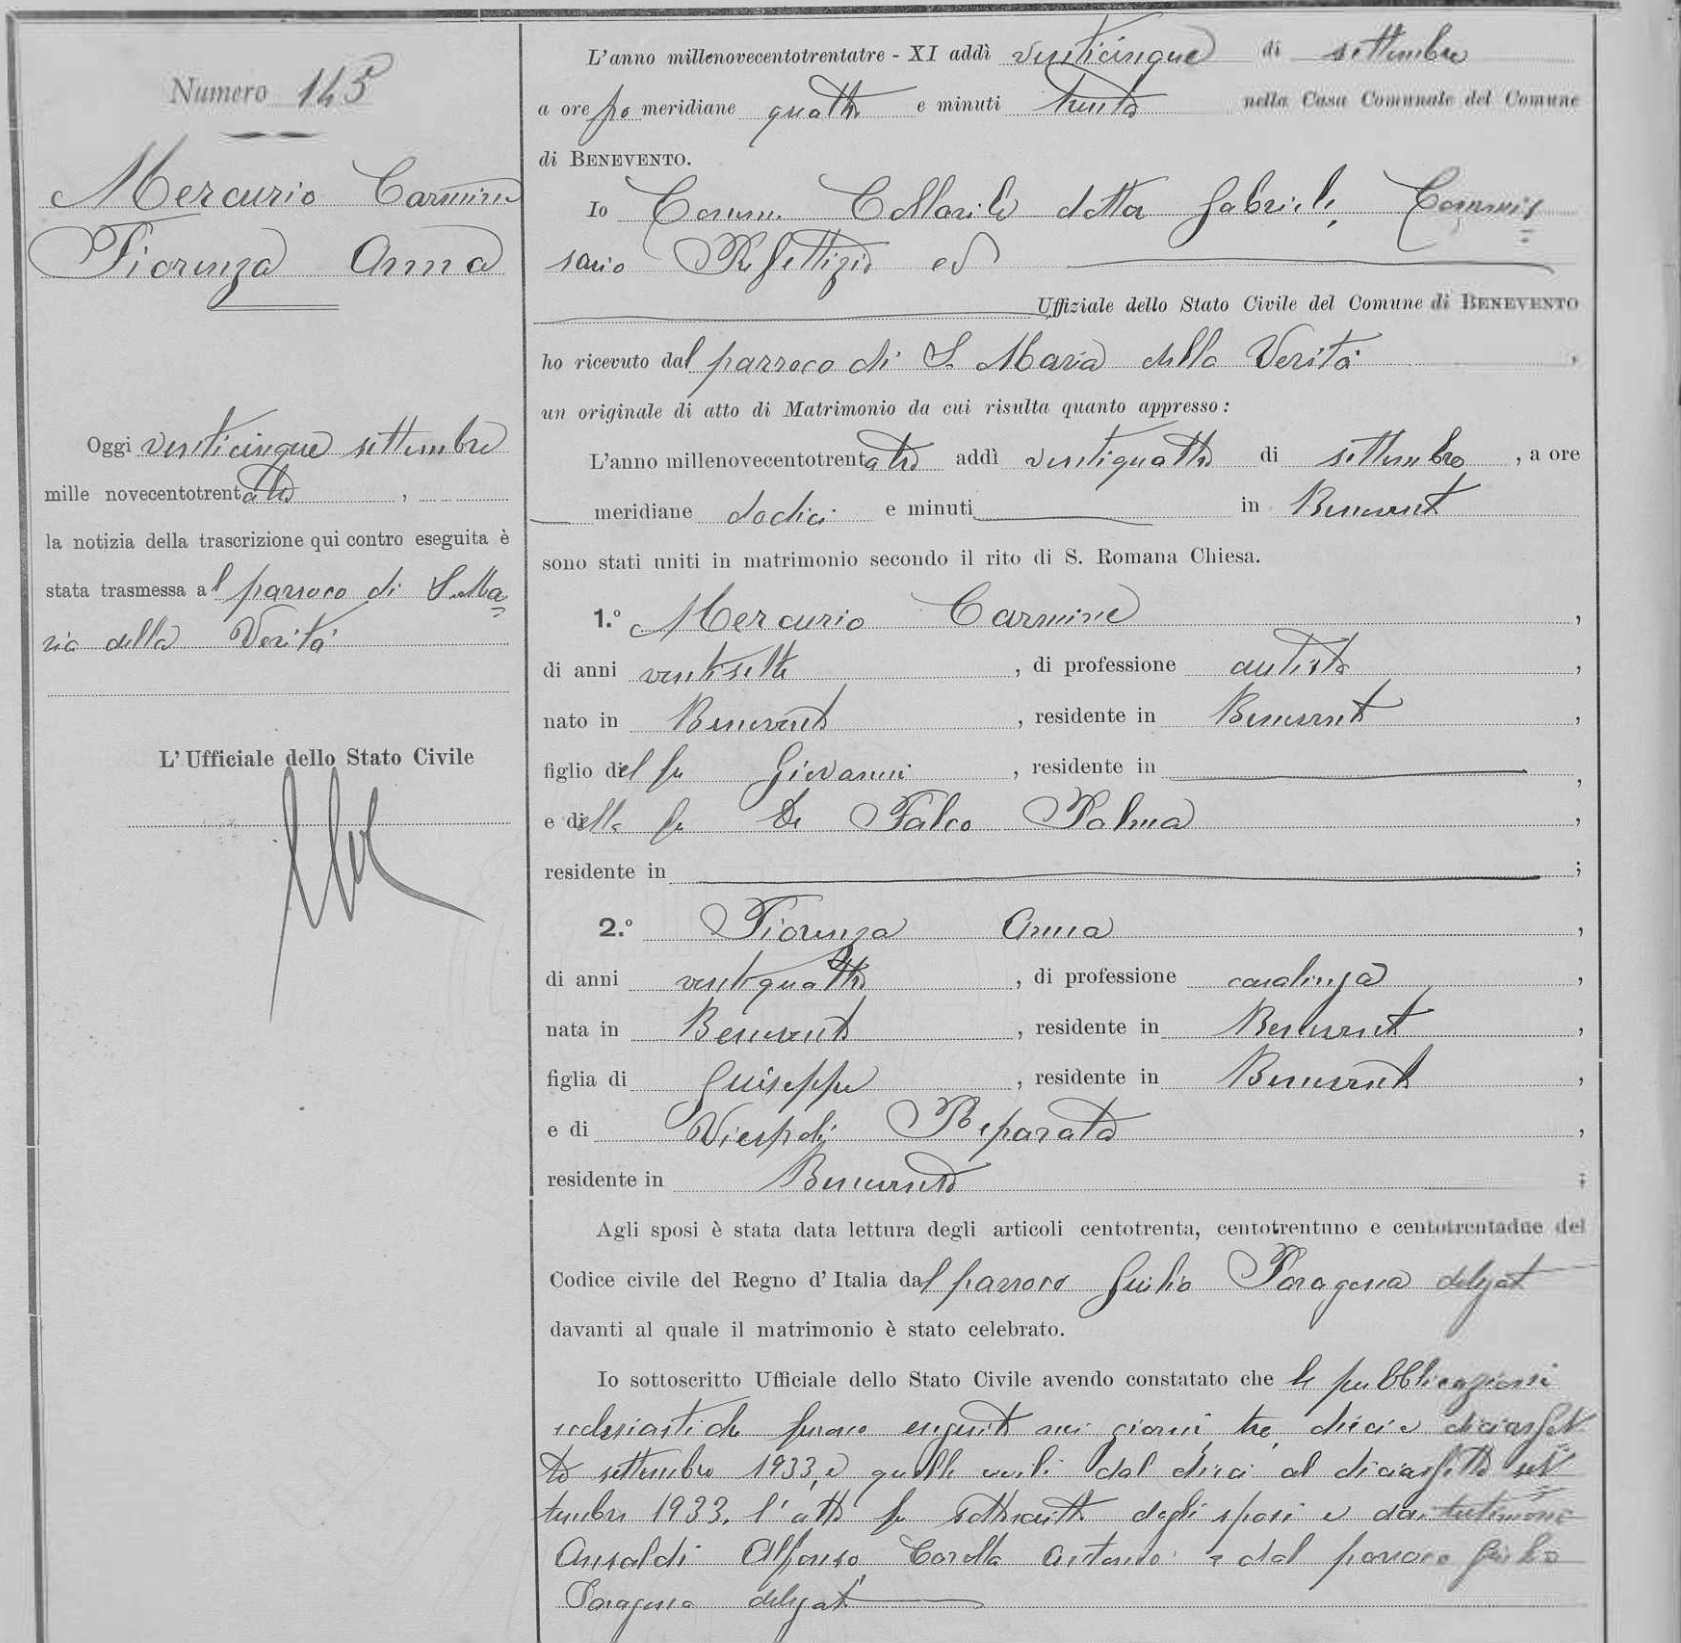 Numero 145
Mercurio Carmine
Fiorenza Anna
Oggi venticinque settembre
mille novecentotrentatre,
la notizia della trascrizione qui contro eseguita è
stata trasmessa al parroco di S. Ma=
ria della Verità
L'Ufficiale dello Stato Civile
L'anno millenovecentotrentatre - XI addì venticinque di settembre
a ore po meridiane quattro e minuti trenta nella Casa Comunale del Comune
di BENEVENTO.
Io Comm. Collarile dottor Gabriele, Commis=
sario Prefettizio ed
Uffiziale dello Stato Civile del Comune di BENEVENTO
ho ricevuto dal parroco di S. Maria della Verità,
un originale di atto di Matrimonio da cui risulta quanto appresso:
L'anno millenovecentotrentatre addì ventiquattro di settembre, a ore
meridiane dodici e minuti in Benevento
sono stati uniti in matrimonio secondo il rito di S. Romana Chiesa.
1.º Mercurio Carmine,
di anni ventisette, di professione autista,
nato in Benevento, residente in Benevento,
figlio del fu Giovanni, residente in,
e della fu De Falco Palma,
residente in;
2.º Fiorenza Anna,
di anni ventiquattro, di professione casalinga,
nata in Benevento, residente in Benevento,
figlia di Guiseppe, residente in Benevento,
e di Viespoli Reparata,
residente in Benevento;
Agli sposi è stata data lettura degli articoli centotrenta, centotrentuno e centotrentadue del
Codice civile del Regno d'Italia dal parroco Giulio delegato
davanti al quale il matrimonio è stato celebrato.
Io sottoscritto Ufficiale dello Stato Civile avendo constatato che le pubblicazioni
ecclesiastiche furono eseguite nei giorni tre, dieci e diciasset=
te settembre 1933, e quelle civili dal dieci al diciassette set=
tembre 1933. l'atto fu sottoscritto dagli sposi e dai testimoni
Ansaldi Alfonso, Antonio e dal parroco Giulio
delegato